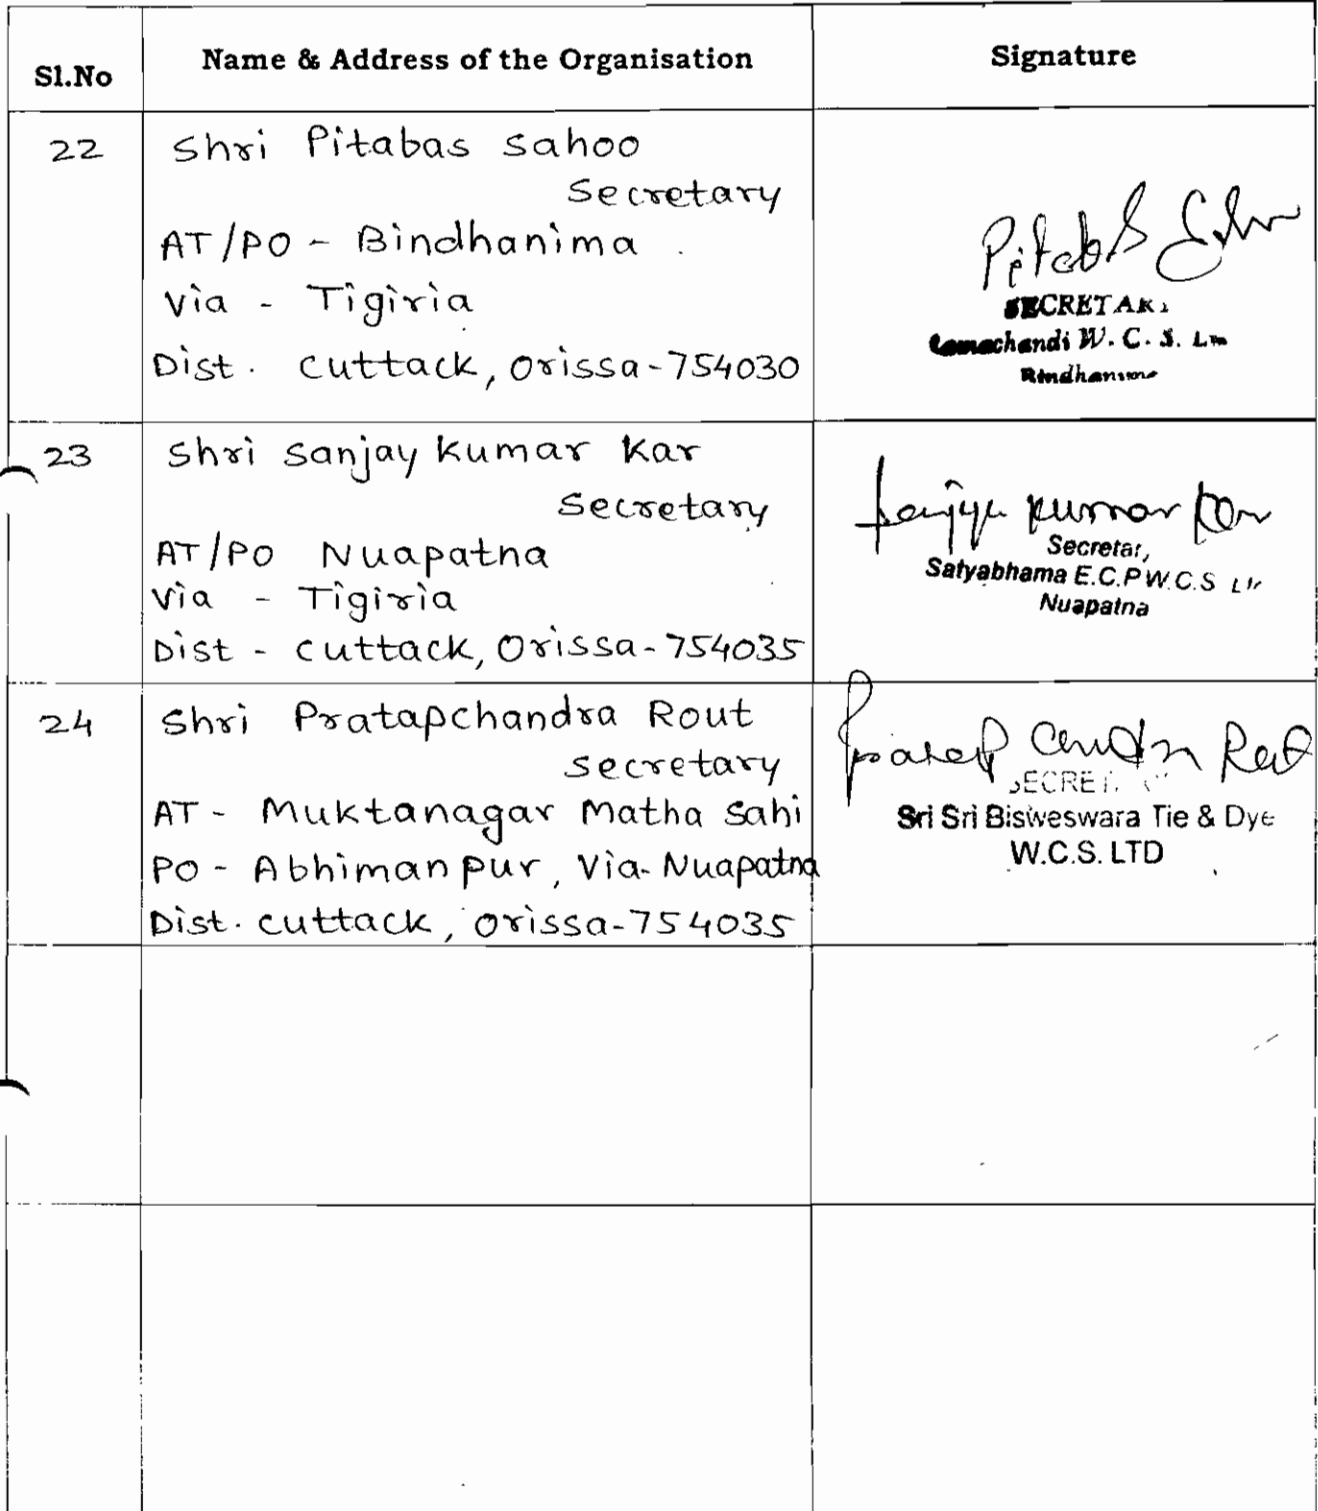 Sl.No
Name & Address of the Organisation
Signature
22
Shri Pitabas Sahoo
Secretary
AT/PO - Bindhanima
Via - Tigiria
Dist. Cuttack, Orissa-754030
Pitabas
W. C. S.
Bindhanima
23
Shri Sanjay Kumar Kar
Secretary
AT/PO Nuapatna
Via - Tigiria
Dist - Cuttack, Orissa-754035
Kumar Kar
Satyabhama E.C.P W.C.S
Nuapatna
24
Shri Pratapchandra Rout
Secretary
AT - Muktanagar Matha Sahi
PO - Abhimanpur, Via-Nuapatna
Dist. Cuttack, Orissa-754035
Sri Sri Bisweswara Tie & Dye
W.C.S. LTD